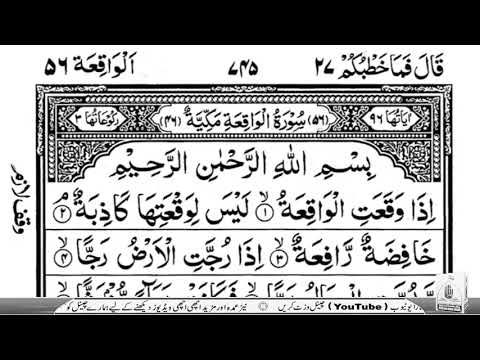 قَالَ فَمَا خَطْبُكُمْ ٢٧ ٧٤٥ اَلْوَاقِعَة ٥٦
اٰیَاتُهَا ٩٦ (٥٦) سُوْرَةُ الْوَاقِعَةِ مَكِّیَّةٌ (٤٦) رُكُوْعَاتُهَا ٣
بِسْمِ اللّٰهِ الرَّحْمٰنِ الرَّحِیْمِ
اِذَا وَقَعَتِ الْوَاقِعَةُ ۙ‏﴿١﴾ لَیْسَ لِوَقْعَتِهَا كَاذِبَةٌ ۘ‏﴿٢﴾
وقف لازم
خَافِضَةٌ رَّافِعَةٌ ۙ‏﴿٣﴾ اِذَا رُجَّتِ الْاَرْضُ رَجًّا ۙ‏﴿٤﴾
یوٹیوب ( YouTube ) چینل وزٹ کریں نیز عمدہ اور مزید اچھی اچھی ویڈیوز دیکھنے کے لیے ہمارے چینل کو